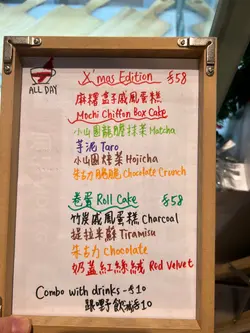 ALL DAY
X'mas Edition $58
麻糬盒子戚風蛋糕
Mochi Chiffon Box Cake
小山園靜岡抹茶 Matcha
芋泥 Taro
小山園焙茶 Hojicha
朱古力脆脆 Chocolate Crunch
卷蛋 Roll Cake $58
竹炭戚風蛋糕 Charcoal
提拉米蘇 Tiramisu
朱古力 Chocolate
奶蓋紅絲絨 Red Velvet
Combo with drinks -$10
跟嘢飲減$10